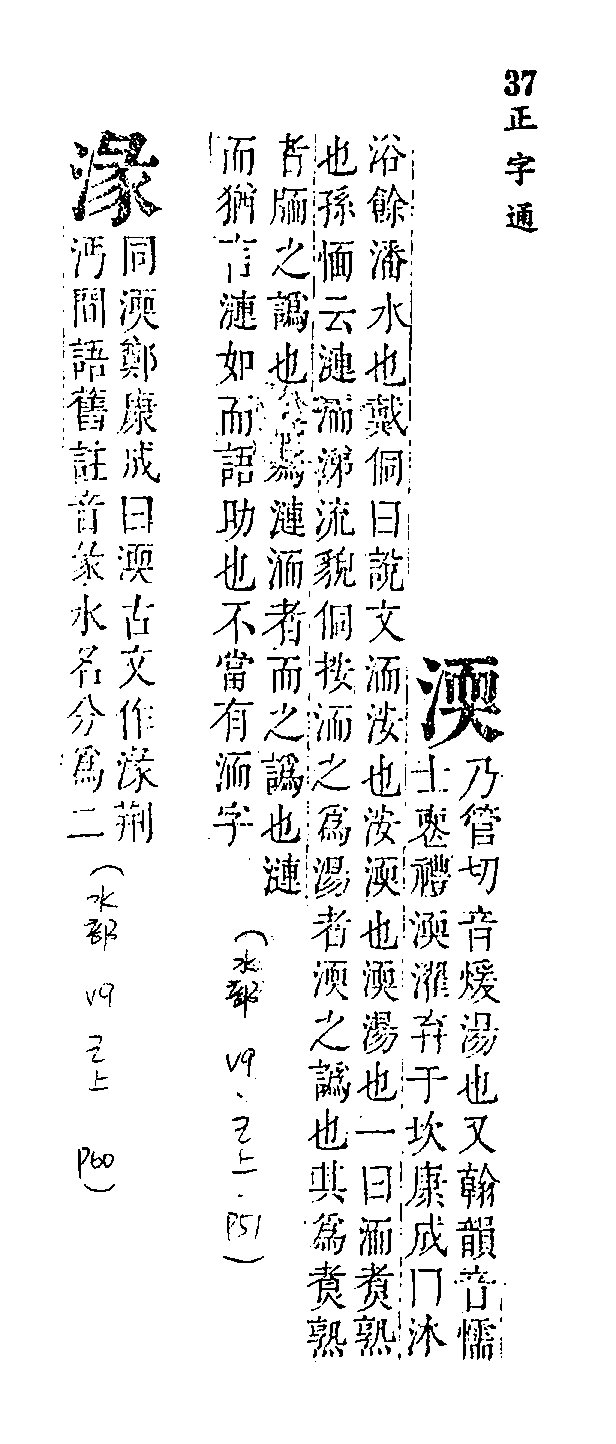 37 正字通
渜
乃管切音煖湯也又翰韻音懦
士喪禮渜濯弃于坎康成曰沐
浴餘潘水也戴侗曰說文洏㳛也㳛渜也渜湯也一曰洏煑熟
也孫愐云漣洏涕流貌侗按洏之爲湯者渜之譌也其爲煑熟
者胹之譌也 爲漣洏者而之譌也漣
而猶言漣如而語助也不當有洏字
(水部 V9、已上.P51)
湪
同渜鄭康成曰渜古文作湪荆
沔間語舊註音彖水名分爲二
(水部 V9 已上 P60)